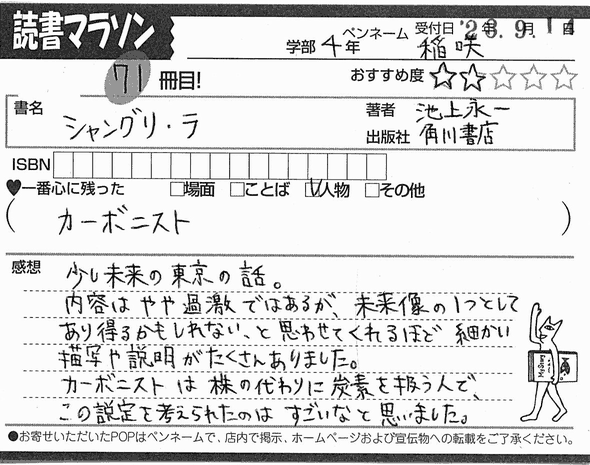 読書マラソン
71冊目!
学部 4年
ペンネーム 稲咲
受付日 '23年9月14日
おすすめ度 ★★☆☆☆
書名 シャングリ・ラ
著者 池上永一
出版社 角川書店
ISBN
♥一番心に残った □場面 □ことば ☑人物 □その他
( カーボニスト )
感想
少し未来の東京の話。
内容はやや過激ではあるが、未来像の1つとして
あり得るかもしれない、と思わせてくれるほど細かい
描写や説明がたくさんありました。
カーボニストは株の代わりに炭素を扱う人で、
この設定を考えられたのはすごいなと思いました。
●お寄せいただいたPOPはペンネームで、店内で掲示、ホームページおよび宣伝物への転載をご了承ください。